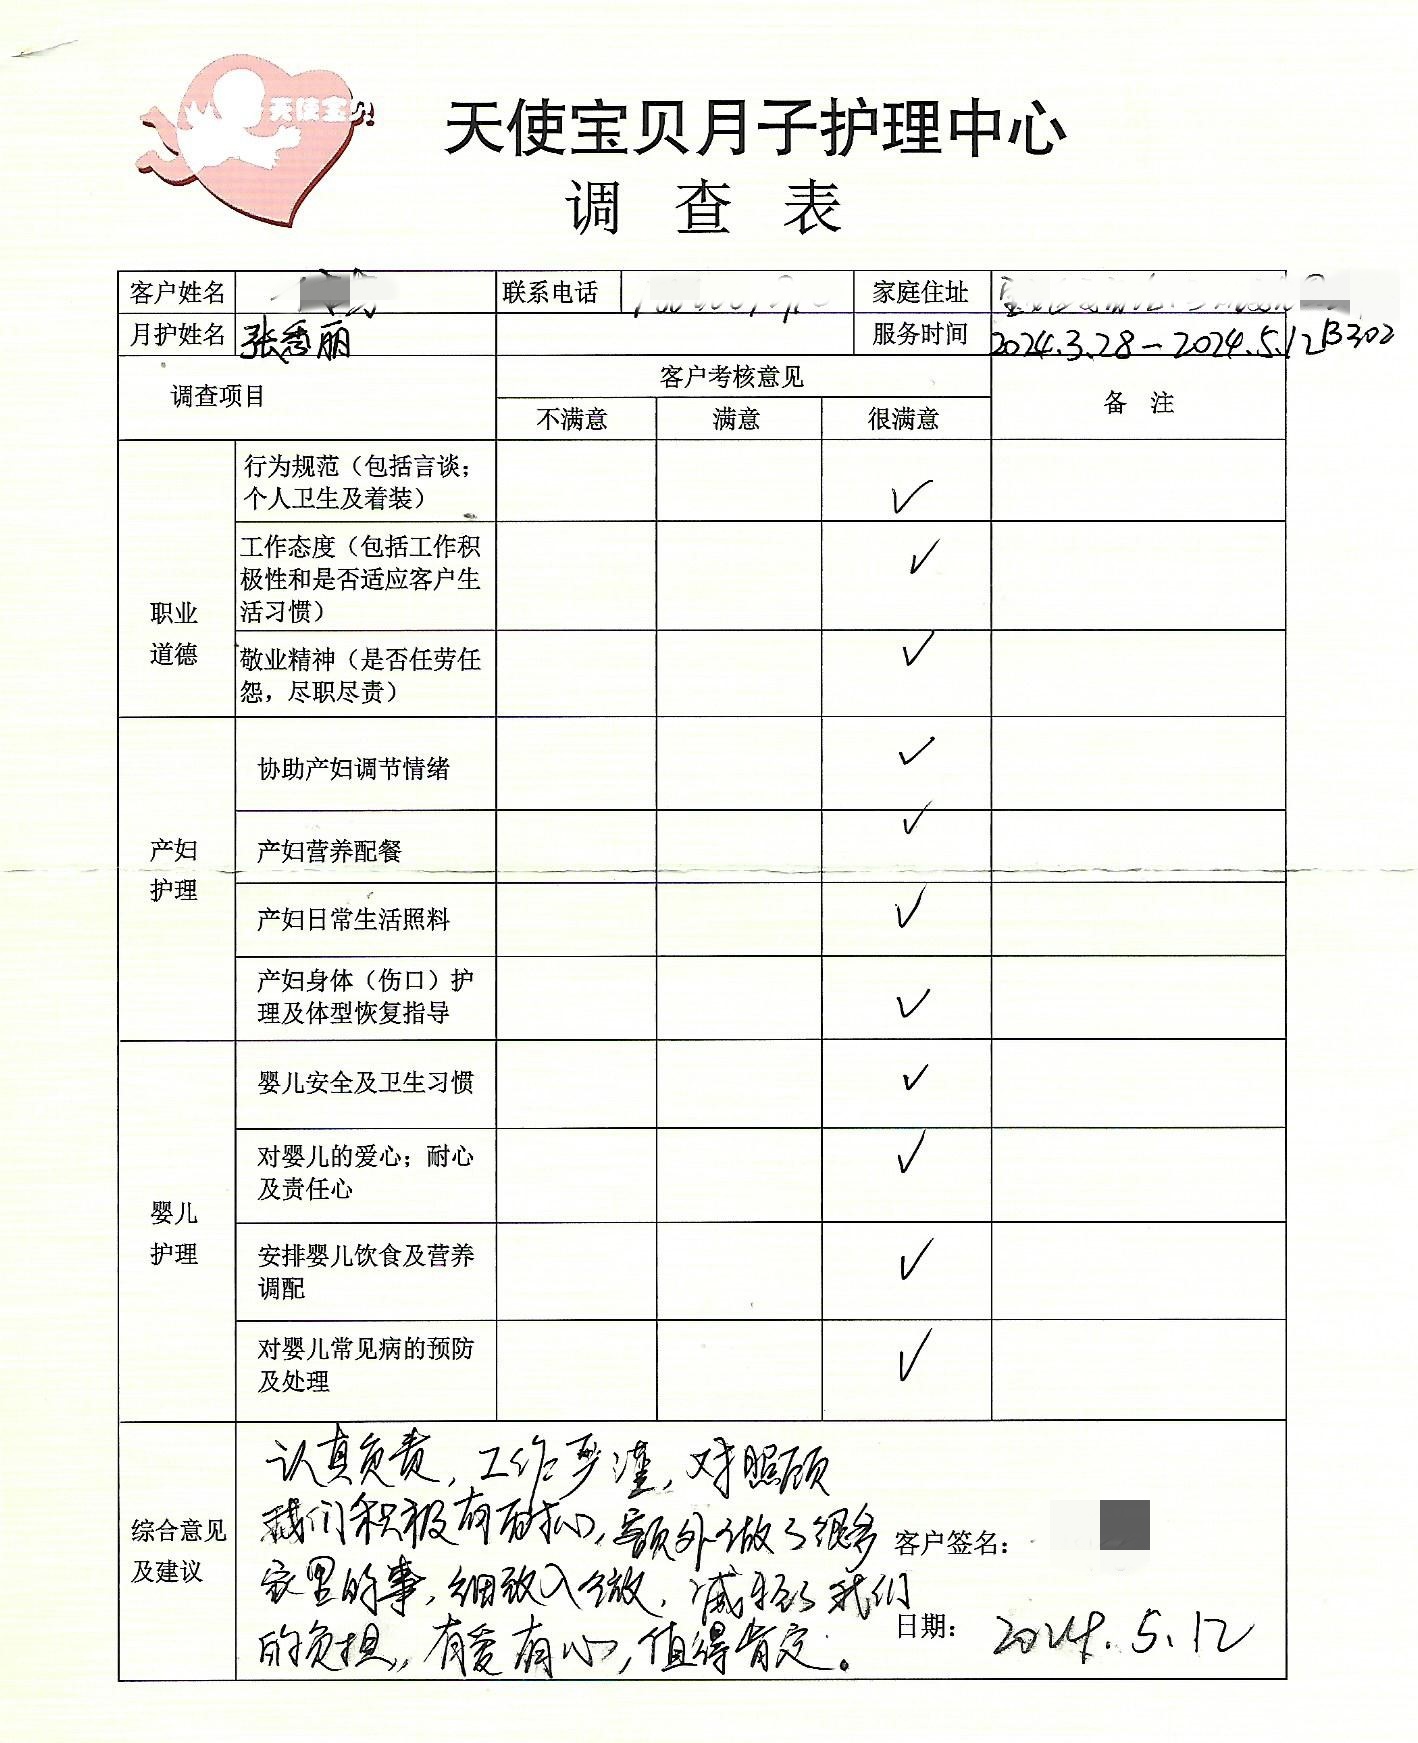 天使宝贝
天使宝贝月子护理中心
调 查 表
客户姓名 联系电话 家庭住址
月护姓名 张秀丽 服务时间 2024.3.28-2024.5.12 B302
调查项目 客户考核意见 备 注
不满意 满意 很满意
职业
道德
行为规范（包括言谈；
个人卫生及着装） ✓
工作态度（包括工作积
极性和是否适应客户生
活习惯） ✓
敬业精神（是否任劳任
怨，尽职尽责） ✓
产妇
护理
协助产妇调节情绪 ✓
产妇营养配餐 ✓
产妇日常生活照料 ✓
产妇身体（伤口）护
理及体型恢复指导 ✓
婴儿
护理
婴儿安全及卫生习惯 ✓
对婴儿的爱心；耐心
及责任心 ✓
安排婴儿饮食及营养
调配 ✓
对婴儿常见病的预防
及处理 ✓
综合意见
及建议
认真负责，工作严谨，对照顾
我们积极有耐心，额外做了很多
家里的事，细致入微，减轻了我们
的负担，有爱有心，值得肯定。
客户签名：
日期： 2024.5.12